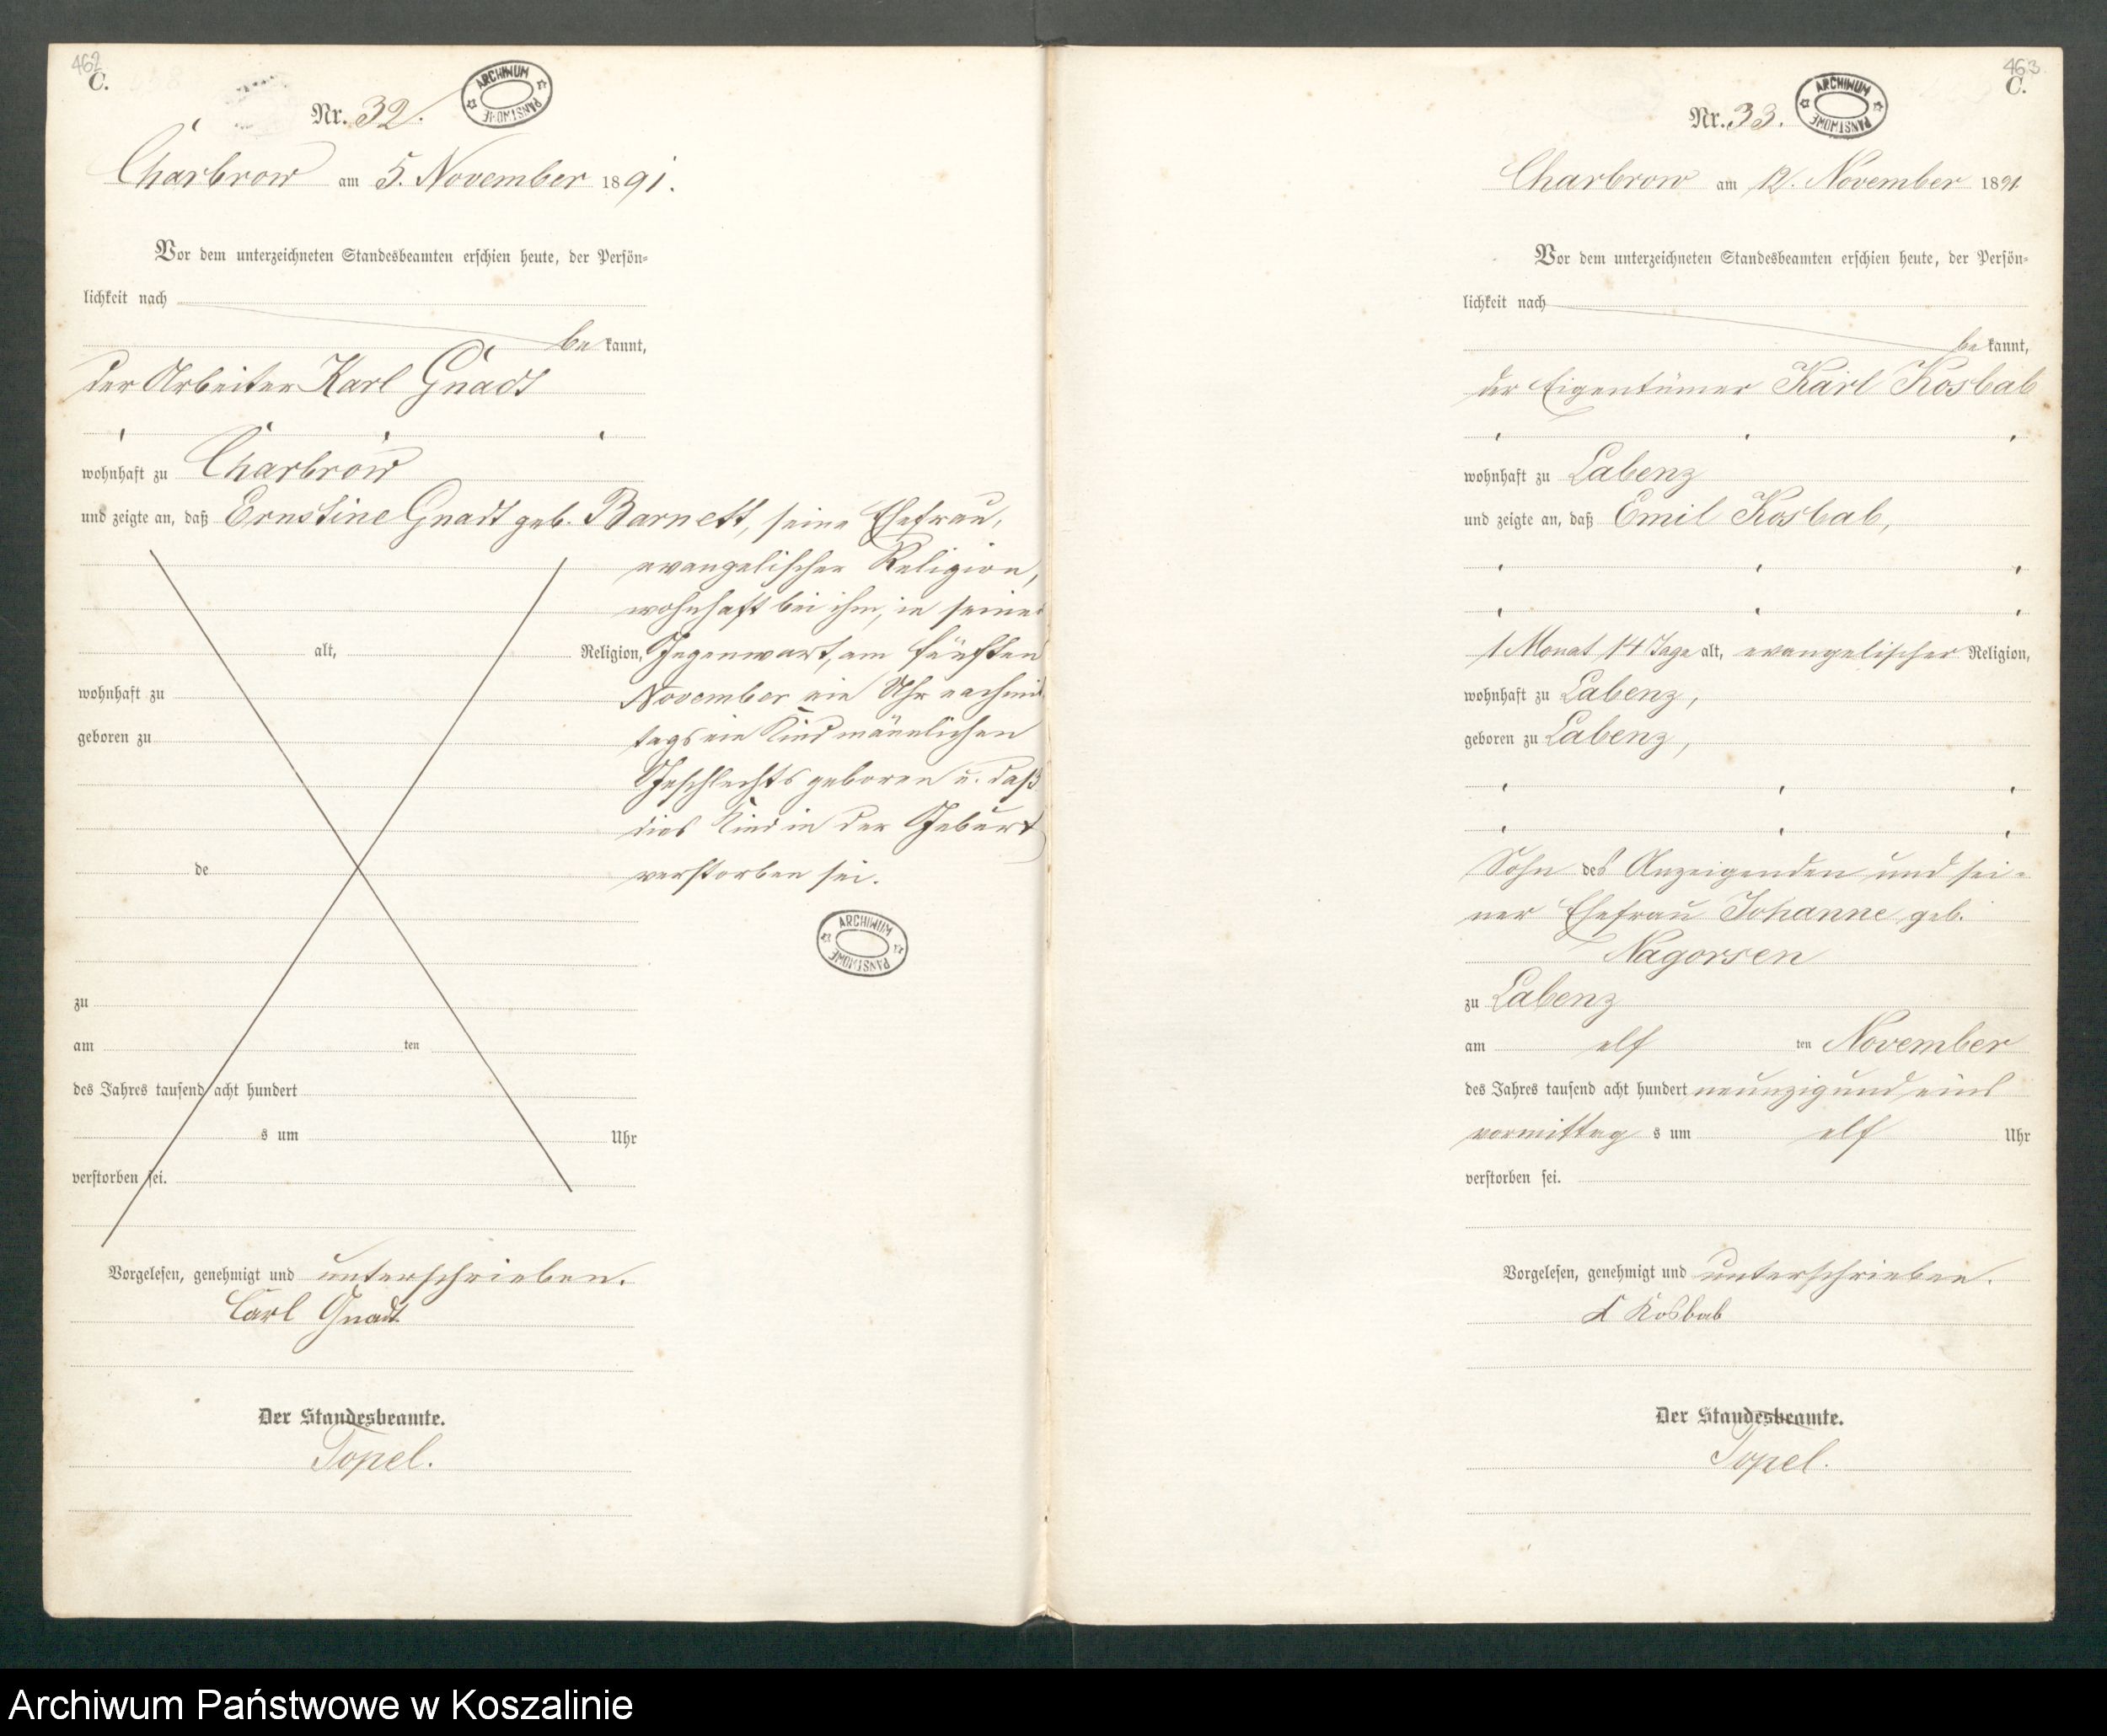 462
C.
Nr. 32.
ARCHIWUM PAŃSTWOWE
Charbrow am 5. November 1891.
Vor dem unterzeichneten Standesbeamten erschien heute, der Persön-
lichkeit nach
be kannt,
der Arbeiter Karl Gnadt
wohnhaft zu Charbrow
und zeigte an, daß Ernstine Gnadt geb. Barnett, seine Ehefrau,
evangelischer Religion,
wohnhaft bei ihm, in seiner
alt, Religion, Gegenwart, am fünften
wohnhaft zu November ein Uhr nachmit
geboren zu tags ein Kind männlichen
Geschlechts geboren u. daß
dies Kind in der Geburt
de verstorben sei.
ARCHIWUM PAŃSTWOWE
zu
am ten
des Jahres tausend acht hundert
s um Uhr
verstorben sei.
Vorgelesen, genehmigt und unterschrieben.
Carl Gnadt
Der Standesbeamte.
Topel.
463
C.
Nr. 33.
ARCHIWUM PAŃSTWOWE
Charbrow am 12. November 1891
Vor dem unterzeichneten Standesbeamten erschien heute, der Persön-
lichkeit nach
be kannt,
der Eigentümer Karl Kosbab
wohnhaft zu Labenz
und zeigte an, daß Emil Kosbab,
1 Monat 14 Tage alt, evangelischer Religion,
wohnhaft zu Labenz,
geboren zu Labenz,
Sohn des Anzeigenden und sei-
ner Ehefrau Johanne geb.
Nagorsen
zu Labenz
am elf ten November
des Jahres tausend acht hundert neunzig und eins
vormittag s um elf Uhr
verstorben sei.
Vorgelesen, genehmigt und unterschrieben.
Kosbab
Der Standesbeamte.
Topel.
Archiwum Państwowe w Koszalinie